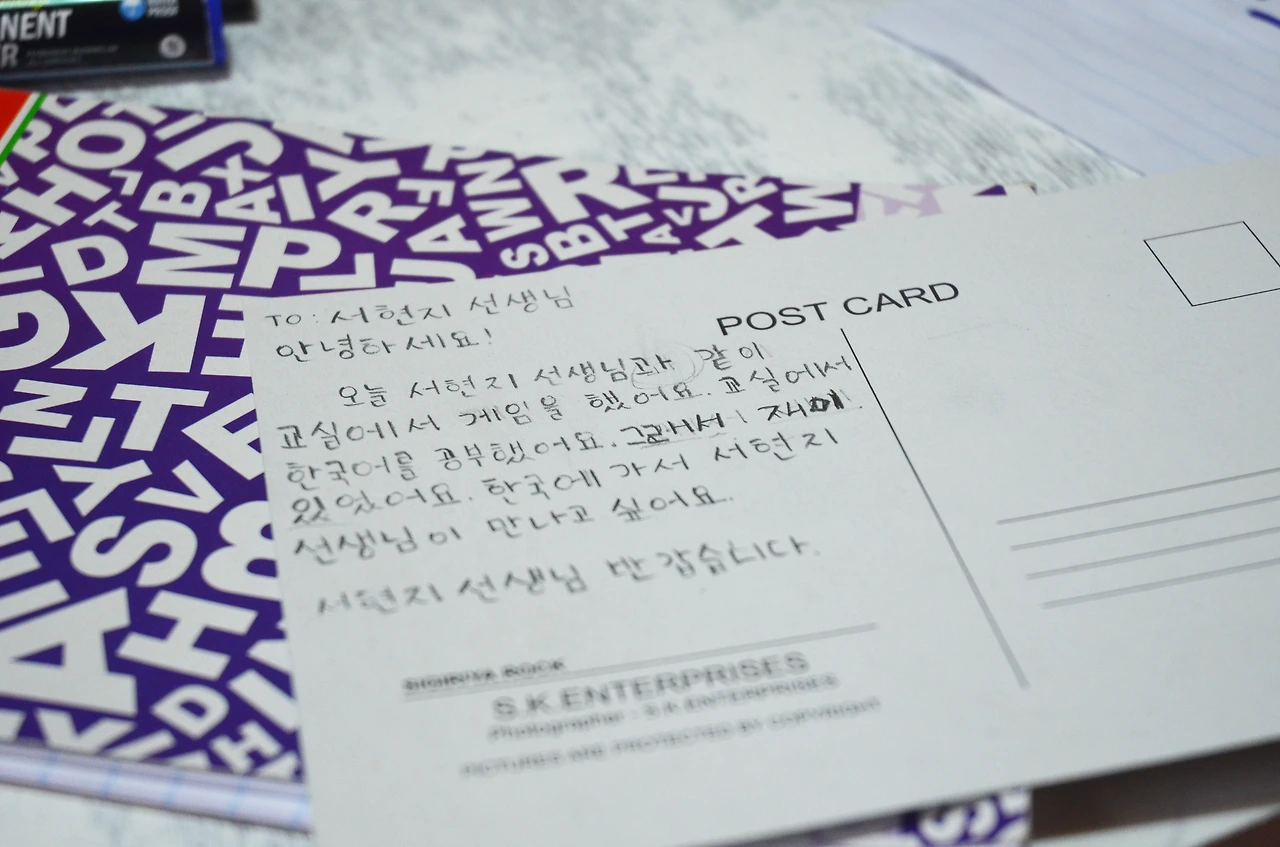 NENT
R
TO: 서현지 선생님
안녕하세요!
오늘 서현지 선생님과 같이
교실에서 게임을 했어요. 교실에서
한국어를 공부했어요. 그래서 재미
있었어요. 한국에 가서 서현지
선생님이 만나고 싶어요.
서현지 선생님 반갑습니다.
POST CARD
SIGIRIYA ROCK
S.K.ENTERPRISES
Photographer - S.K.ENTERPRISES
PICTURES ARE PROTECTED BY COPYRIGHT